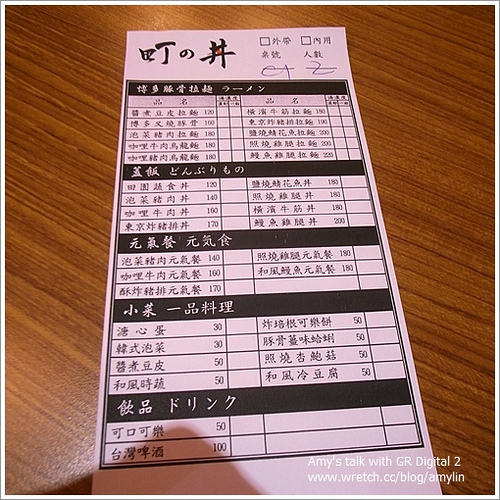 町の丼
□外帶 □內用
桌號 人數
2
博多豚骨拉麵 ラーメン
品 名 品 名
醬煮豆皮拉麵 120 橫濱牛筋拉麵 180
博多叉燒豚骨 160 東京炸豬排拉麵 190
泡菜豬肉拉麵 180 鹽燒鯖花魚拉麵 200
咖哩牛肉烏龍麵 180 照燒雞腿拉麵 200
咖哩豬肉烏龍麵 180 鰻魚雞腿拉麵 220
蓋飯 どんぶりもの
田園蔬食丼 120 鹽燒鯖花魚丼 180
泡菜豬肉丼 140 照燒雞腿丼 180
咖哩牛肉丼 160 橫濱牛筋丼 180
東京炸豬排丼 170 鰻魚雞腿丼 200
元氣餐 元気食
泡菜豬肉元氣餐 140 照燒雞腿元氣餐 180
咖哩牛肉元氣餐 160 和風鰻魚元氣餐 180
酥炸豬排元氣餐 170
小菜 一品料理
溏心蛋 30 炸培根可樂餅 50
韓式泡菜 30 豚骨薑味蛤蜊 50
醬煮豆皮 50 照燒杏鮑菇 50
和風時蔬 50 和風冷豆腐 50
飲品 ドリンク
可口可樂 50
台灣啤酒 100
Amy's talk with GR Digital 2
www.wretch.cc/blog/amylin